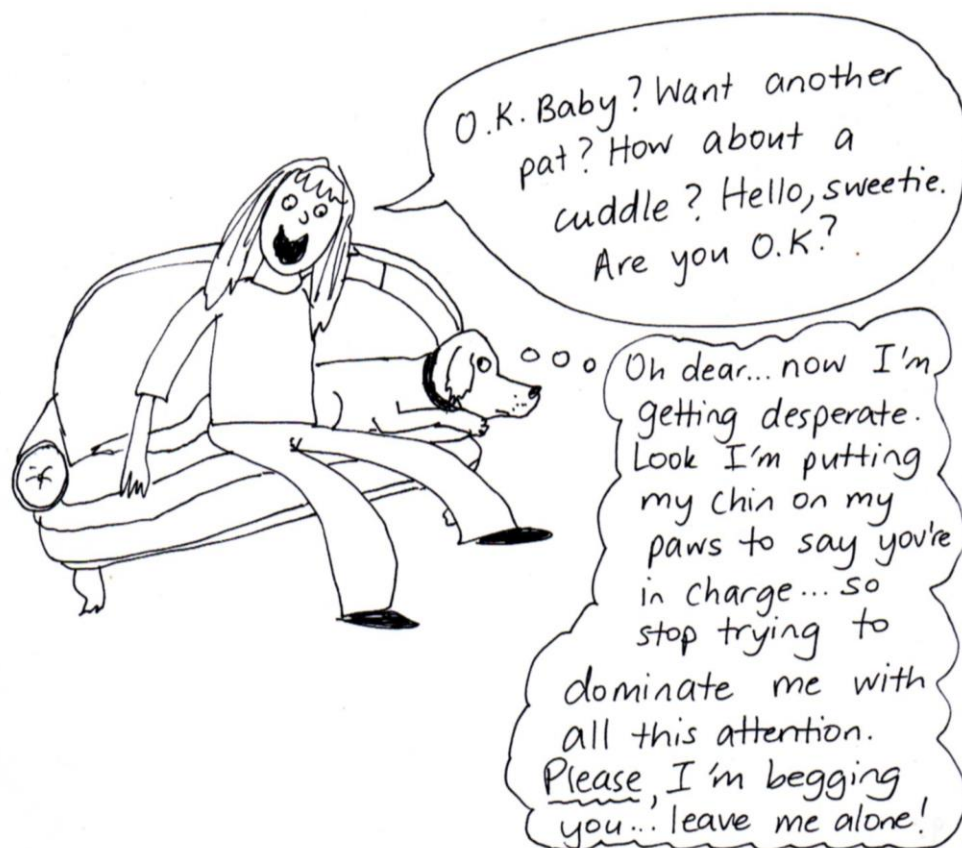 O.K. Baby? Want another
pat? How about a
cuddle? Hello, sweetie.
Are you O.K.?
Oh dear... now I'm
getting desperate.
Look I'm putting
my chin on my
paws to say you're
in charge... so
stop trying to
dominate me with
all this attention.
Please, I'm begging
you... leave me alone!